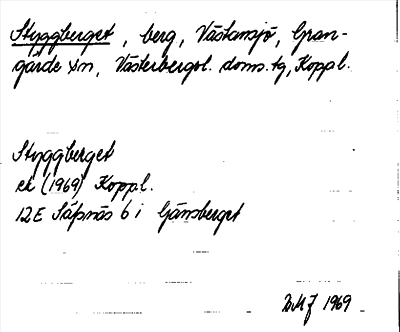 Styggberget, berg, Västansjö, Gran-
gärde sn, Västerbergsl. doms. tg, Koppl.
Styggberget
ek (1969) Koppl.
12E Säfsnäs 6 i Gänsberget
1969